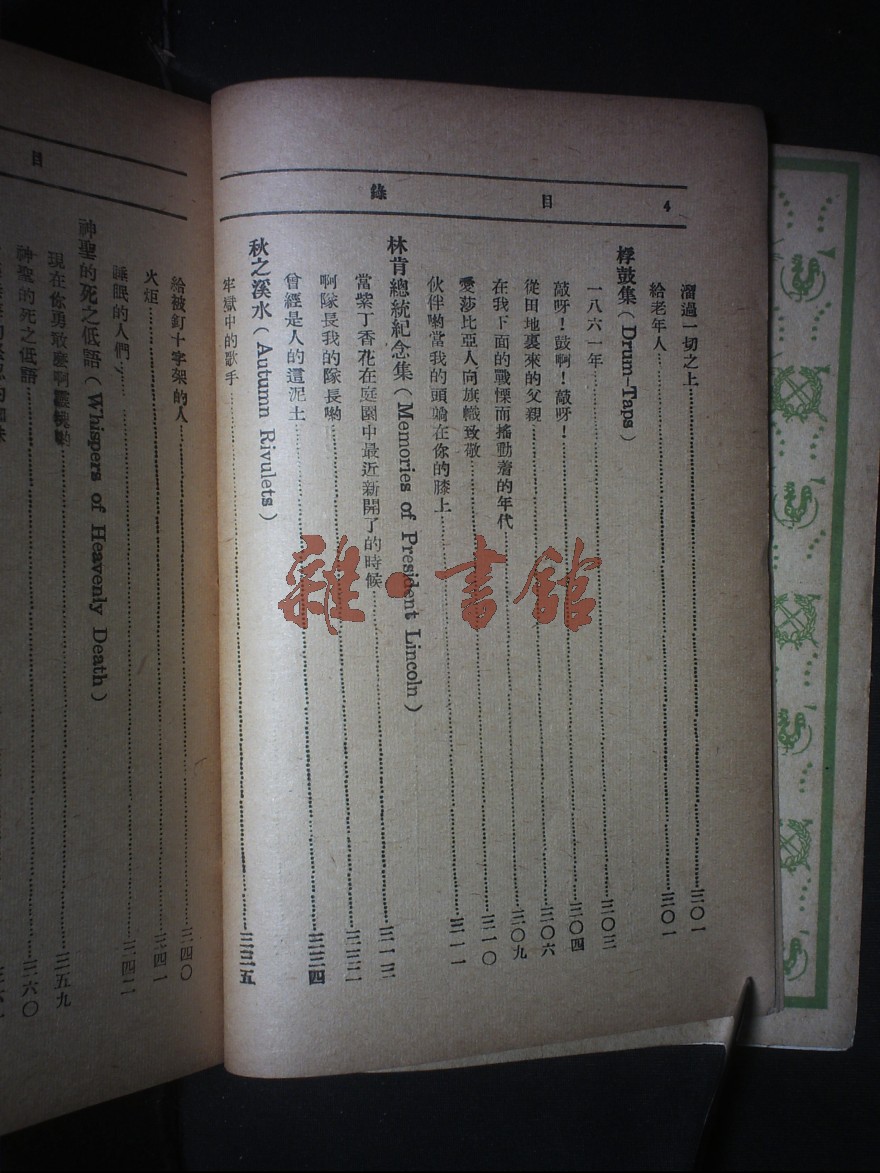 4 目 錄
溜過一切之上……三〇一
給老年人……三〇一
桴鼓集(Drum-Taps)
一八六一年……三〇三
敲呀!鼓啊!敲呀!……三〇四
從田地裏來的父親……三〇六
在我下面的戰慄而搖動着的年代……三〇九
愛莎比亞人向旗幟致敬……三一〇
伙伴喲當我的頭躺在你的膝上……三一一
林肯總統紀念集(Memories of President Lincoln)
當紫丁香花在庭園中最近新開了的時候……三一三
啊隊長我的隊長喲……三二二
曾經是人的這泥土……三二四
秋之溪水(Autumn Rivulets)
牢獄中的歌手……三二五
目
給被釘十字架的人……三四〇
火炬……三四一
睡眠的人們……三四二
神聖的死之低語(Whispers of Heavenly Death)
現在你勇敢麼啊靈魂喲……三五九
神聖的死之低語……三六〇
雜·書館